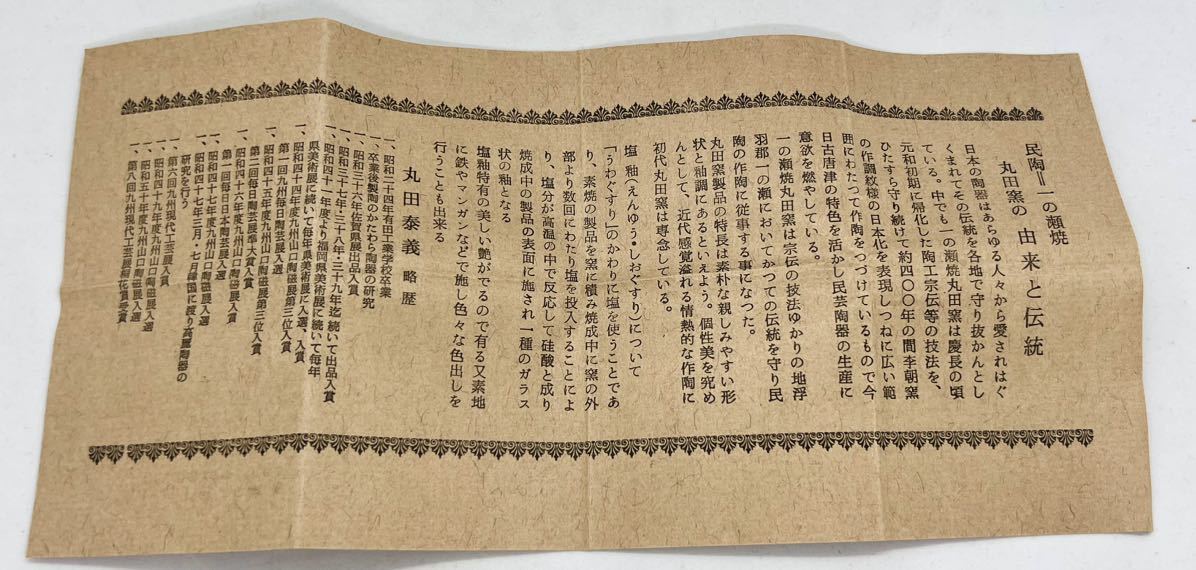 民陶＝一の瀬焼
丸田窯の 由来と伝統
日本の陶器はあらゆる人々から愛されはぐ
くまれてその伝統を各地で守り抜かんとし
ている。中でも一の瀬焼丸田窯は慶長の頃
元和初期に帰化した陶工宗伝等の技法を、
ひたすら守り続けて約四〇〇年の間李朝窯
の作調紋様の日本化を表現しつねに広い範
囲にわたって作陶をつづけているもので今
日古唐津の特色を活かし民芸陶器の生産に
意欲を燃やしている。
一の瀬焼丸田窯は宗伝の技法ゆかりの地浮
羽郡一の瀬においてかつての伝統を守り民
陶の作陶に従事する事になつた。
丸田窯製品の特長は素朴な親しみやすい形
状と釉調にあるといえよう。個性美を究め
んとして、近代感覚溢れる情熱的な作陶に
初代丸田窯は専念している。
塩釉（えんゆう・しおぐすり）について
「うわぐすり」のかわりに塩を使うことであ
り、素焼の製品を窯に積み焼成中に窯の外
部より数回にわたり塩を投入することによ
り、塩分が高温の中で反応して硅酸と成り
焼成中の製品の表面に施され一種のガラス
状の釉となる
塩釉特有の美しい艶がでるので有る又素地
に鉄やマンガンなどで施し色々な色出しを
行うことも出来る
丸田泰義 略歴
一、昭和二十四年有田工業学校卒業
一、卒業後製陶のかたわら陶器の研究
一、昭和三十六年佐賀県展出品入賞
一、昭和三十七年・三十八年・三十九年迄続いて出品入賞
一、昭和四十一年度より福岡県美術展に続いて毎年
県美術展に続いて毎年県美術展に入選、入賞
一、昭和四十四年度九州山口陶磁展三位入賞
第一回九州毎日陶芸展入選
一、昭和四十五年度九州山口陶磁展第三位入賞
第二回毎日陶芸展準大賞入賞
一、昭和四十六年度九州山口陶磁展入賞
第一回毎日日本陶芸展入選
一、昭和四十七年度九州山口陶磁展入選
一、昭和四十七年三月・七月韓国に渡り高麗陶器の
研究を行う
一、第六回九州現代工芸展入賞
一、昭和四十九年度九州山口陶磁展入選
一、昭和五十年度九州山口陶磁展入選
一、第八回九州現代工芸展桐花賞受賞